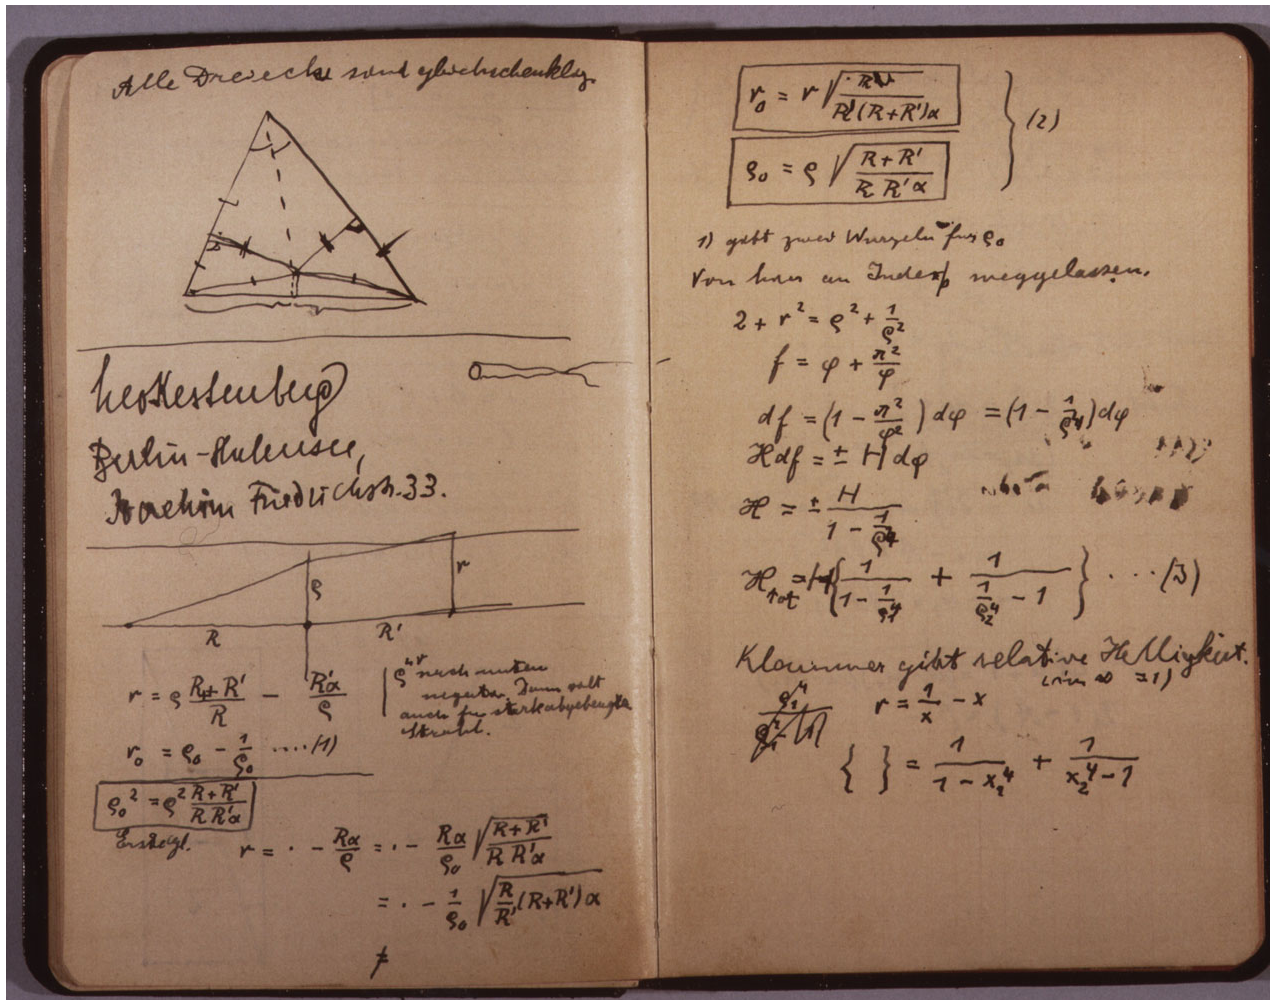 Alle Dreiecke sind gleichschenklig.
Leo Kestenberg
Berlin-Halensee,
Joachim Friedrichstr. 33.
ρ r
R R'
r = ρ (R+R')/R − R'α/ρ
ρ nach unten
negativ. Dann gilt
auch für stark abgebeugten
Strahl.
r₀ = ρ₀ − 1/ρ₀ ....(1)
ρ₀² = ρ² (R+R')/(R R'α)
r = · − Rα/ρ = · − Rα/ρ₀ √((R+R')/(R R'α))
= · − 1/ρ₀ √(R/R' (R+R')α)
≠
r₀ = r √(R/(R'(R+R')α))
ρ₀ = ρ √((R+R')/(R R'α))
} (2)
1) gibt zwei Wurzeln für ρ₀
Von hier an Index weggelassen.
2 + r² = ρ² + 1/ρ²
f = φ + π²/φ
df = (1 − π²/φ²) dφ = (1 − 1/ρ⁴) dφ
ℋ df = ± H dφ
ℋ = ± H/(1 − 1/ρ⁴)
ℋtot = H {1/(1 − 1/ρ₁⁴) + 1/(1/ρ₂⁴ − 1)} ...(3)
Klammer gibt relative Helligkeit.
(in ∞ = 1)
r = 1/x − x
{ } = 1/(1 − x₁⁴) + 1/(x₂⁴ − 1)